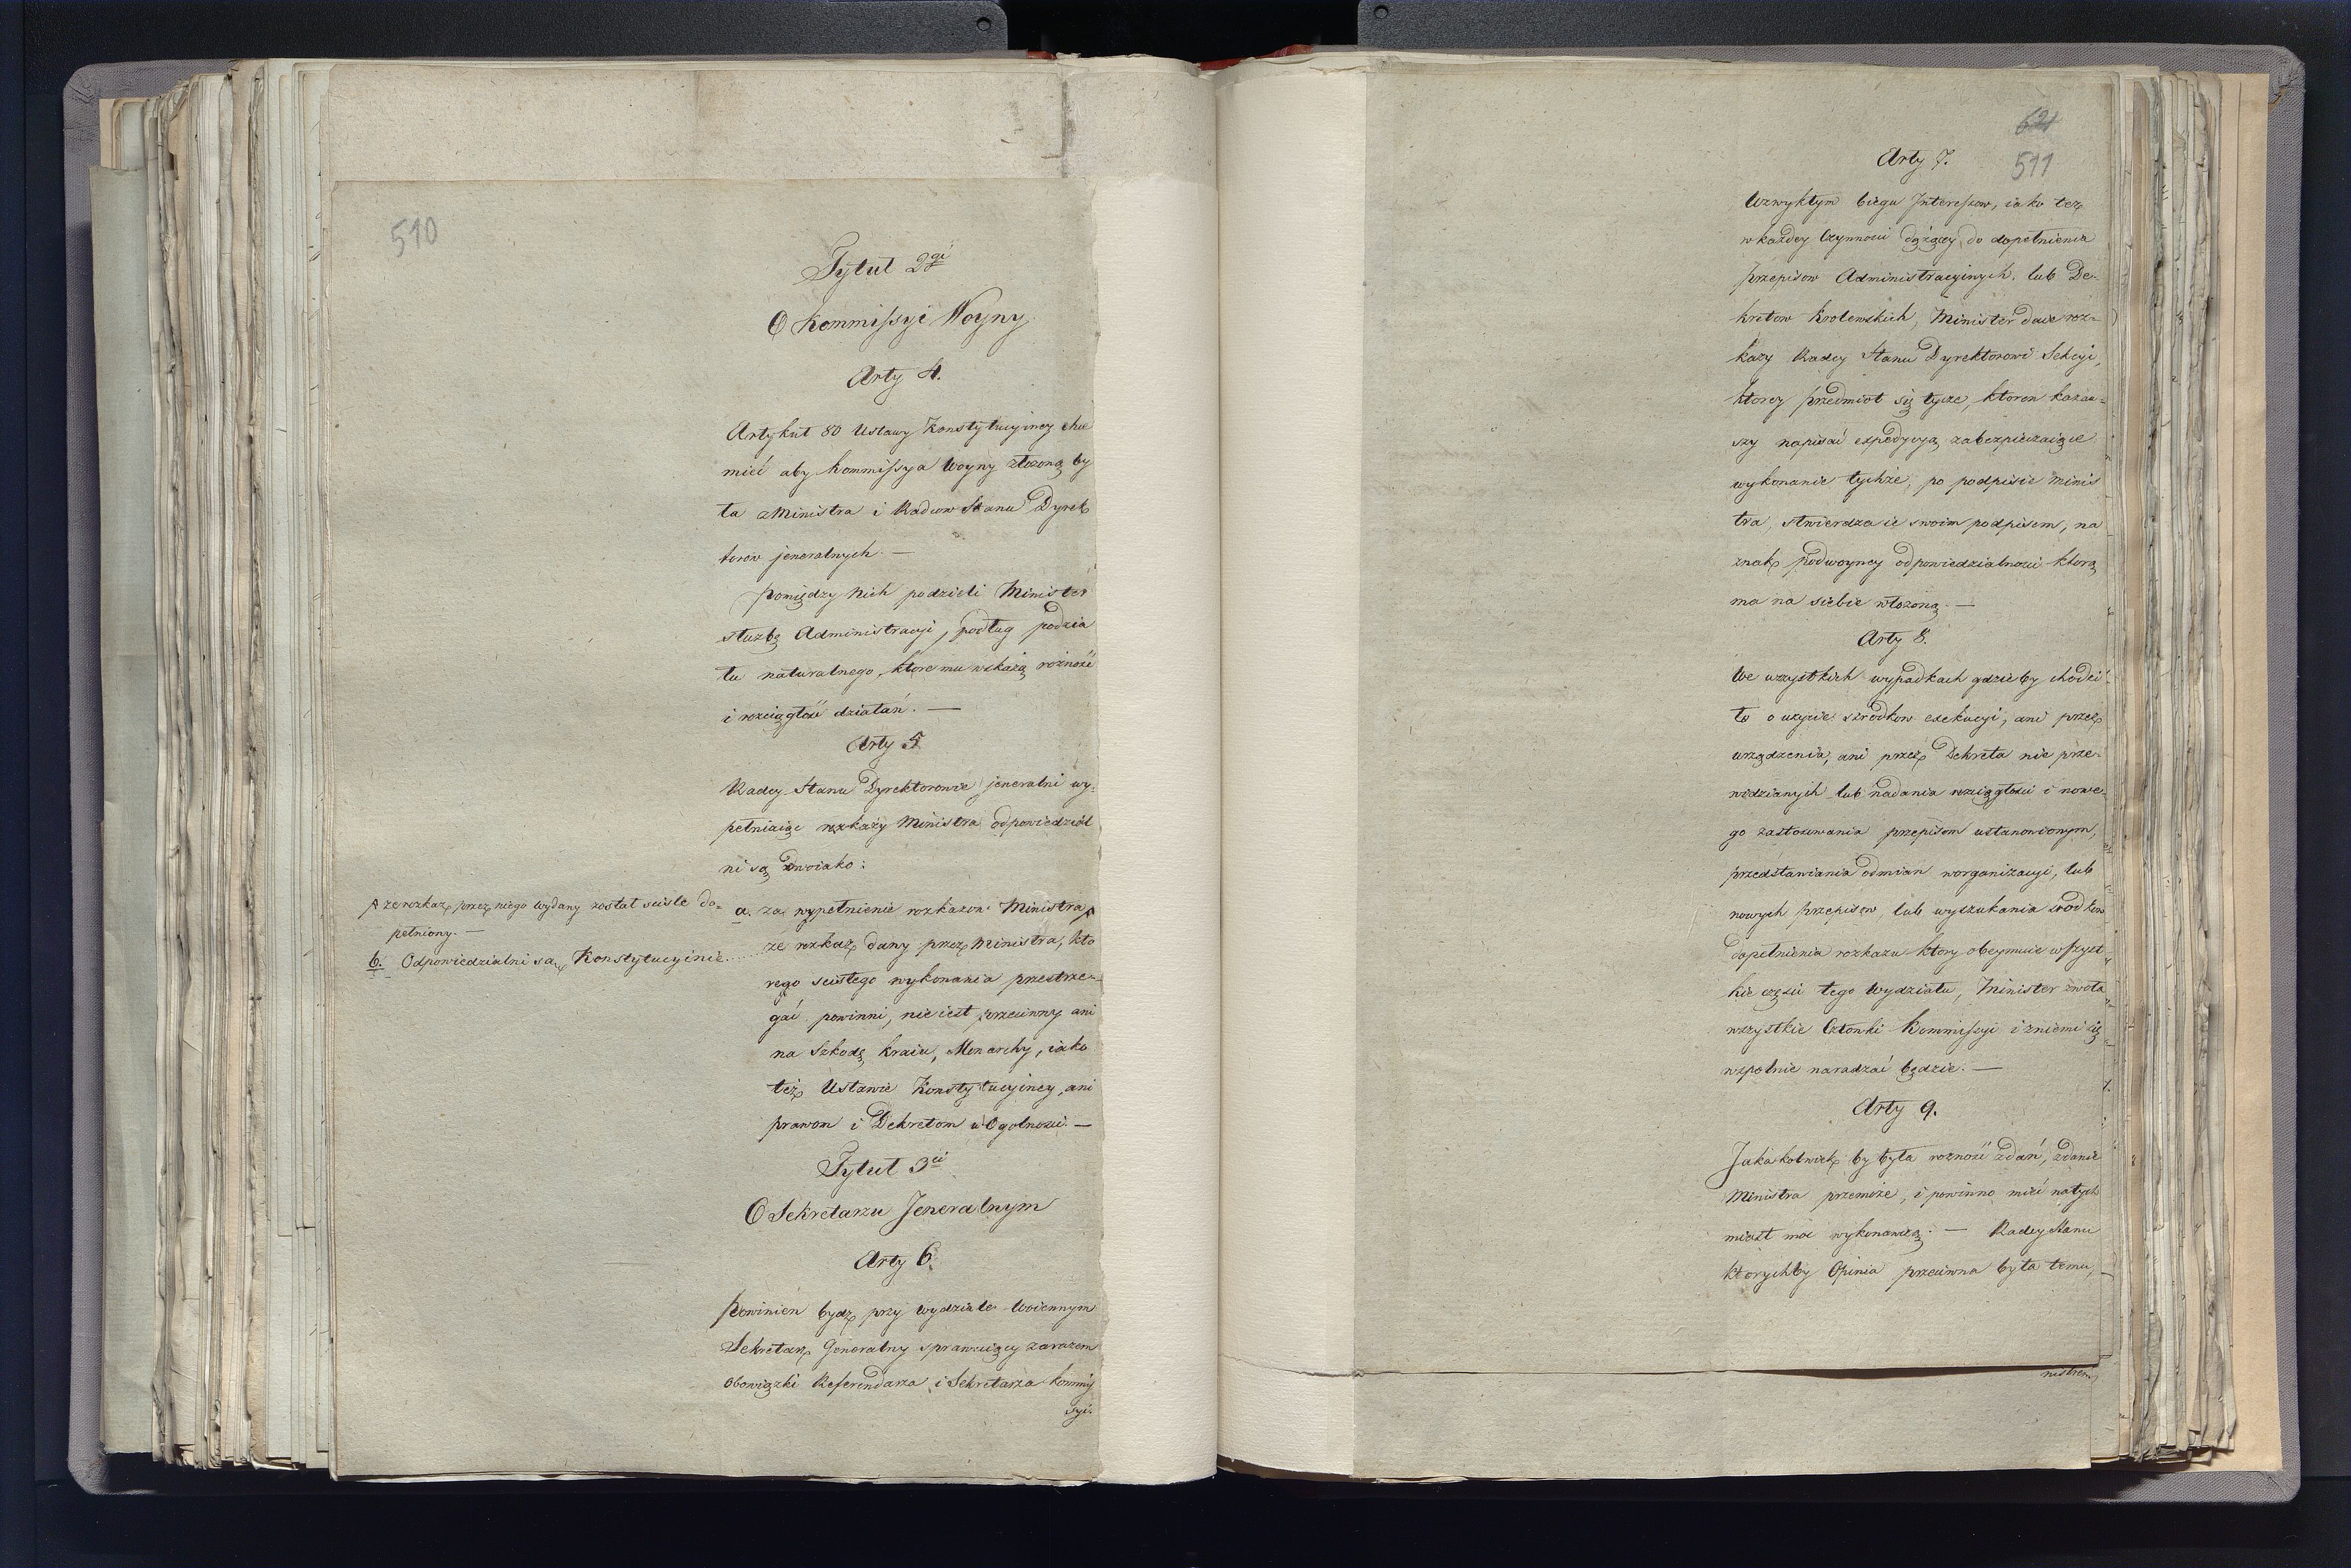 510
Tytuł 2gi
O Kommissyi Woyny
Arty 4.
Artykuł 80 Ustawy Konstytucyiney chce
mieć aby Kommissya Woyny złożoną by
ła z Ministra i Radców Stanu Dyrek
torów jeneralnych. —
Pomiędzy nich podzieli Minister
służbę Administracyi, podług podzia
łu naturalnego, ktore mu wskażą rożność
i rozciągłość działań. —
Arty 5.
Radcy Stanu Dyrektorowie jeneralni wy-
pełniaiąc rozkazy Ministra odpowiedzial
ni są dwoiako:
a. za wypełnienie rozkazow Ministra
że rozkaz przez niego wydany został scisle do-
pełniony. —
b. Odpowiedzialni są Konstytucyinie
że rozkaz dany przez Ministra, kto
rego scisłego wykonania przestrze-
gać powinni, nie iest przeciwny ani
na szkodę kraiu, Monarchy, iako
też Ustawie Konstytucyiney, ani
prawom i Dekretom w Ogolności. —
Tytuł 3ci
O Sekretarzu Jeneralnym
Arty 6.
Powinien bydz przy wydziale Woiennym
Sekretarz Generalny sprawuiący zarazem
obowiązki Referendarza i Sekretarza Kommis
syi.
621
511
Arty 7.
W zwykłym biegu Interessow, iako też
w każdey Czynności dążącey do dopełnienia
Przepisow Administracyinych lub De-
kretow Krolewskich, Minister daie roz-
kazy Radcy Stanu Dyrektorowi Sekcyi,
ktorey przedmiot się tycze, ktoren kazaw-
szy napisać expedycyą zabezpieczaiące
wykonanie tychże, po podpisie Minis
tra, stwierdza ie swoim podpisem, na
znak podwoyney odpowiedzialności ktorą
ma na siebie włożoną. —
Arty 8.
We wszystkich wypadkach gdzie by chodzi-
ło o użycie szrodkow exekucyi, ani przez
urządzenia, ani przez Dekreta nie prze-
widzianych lub nadania rozciągłości i nowe-
go zastosowania przepisom ustanowionym,
przedstawiania odmian w organizacyi, lub
nowych przepisow, lub wyszukania srodkow
dopełnienia rozkazu ktory obeymuie wszyst
kie części tego Wydziału, Minister zwoła
wszystkie Członki Kommissyi i z niemi się
wspolnie naradzać będzie. —
Arty 9.
Jaka kolwiek by była rożność zdań, zdanie
Ministra przemoże, i powinno mieć natych
miast moc wykonawczą. — Radcy Stanu
ktorychby Opinia przeciwna była temu,
nistrem